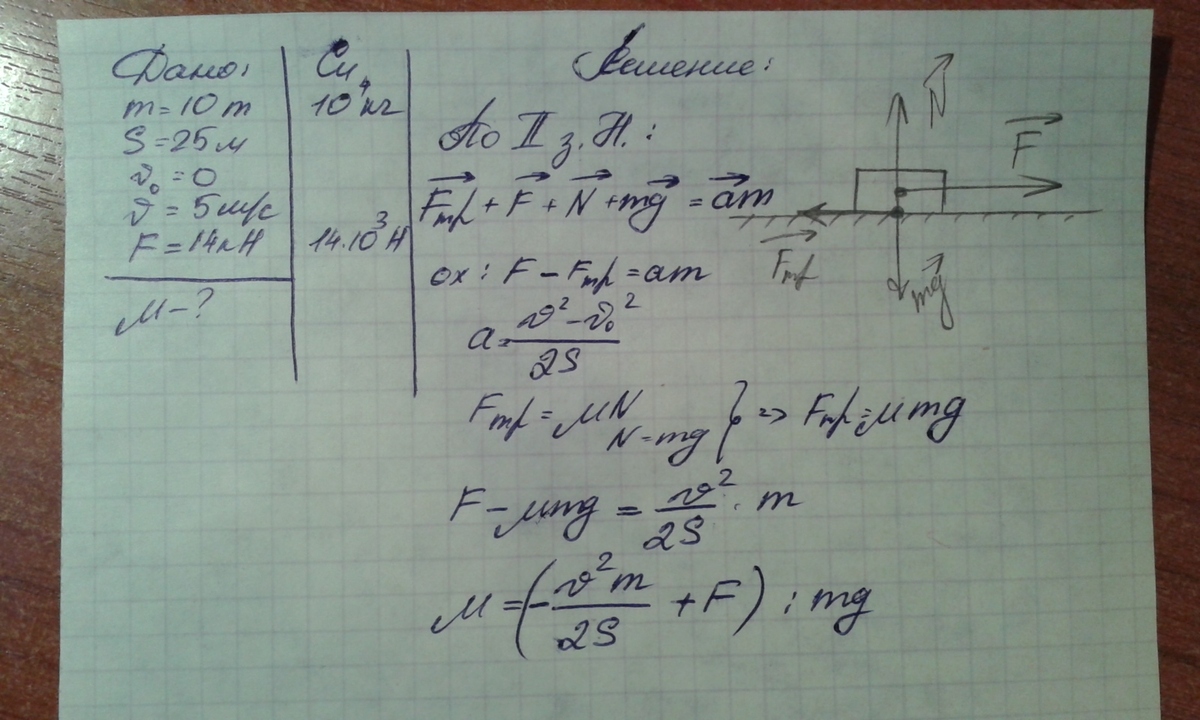 Дано:
m = 10 т
S = 25 м
v₀ = 0
v = 5 м/с
F = 14 кН
μ - ?
Си
10⁴ кг
14·10³ Н
Решение:
По II з. Н.:
F⃗тр + F⃗ + N⃗ + mg⃗ = a⃗m
ox: F - Fтр = am
a = (v² - v₀²) / 2S
Fтр = μN
N = mg } => Fтр = μmg
F - μmg = v² / 2S · m
μ = (- v²m / 2S + F) : mg
N⃗
F⃗
F⃗тр
mg⃗